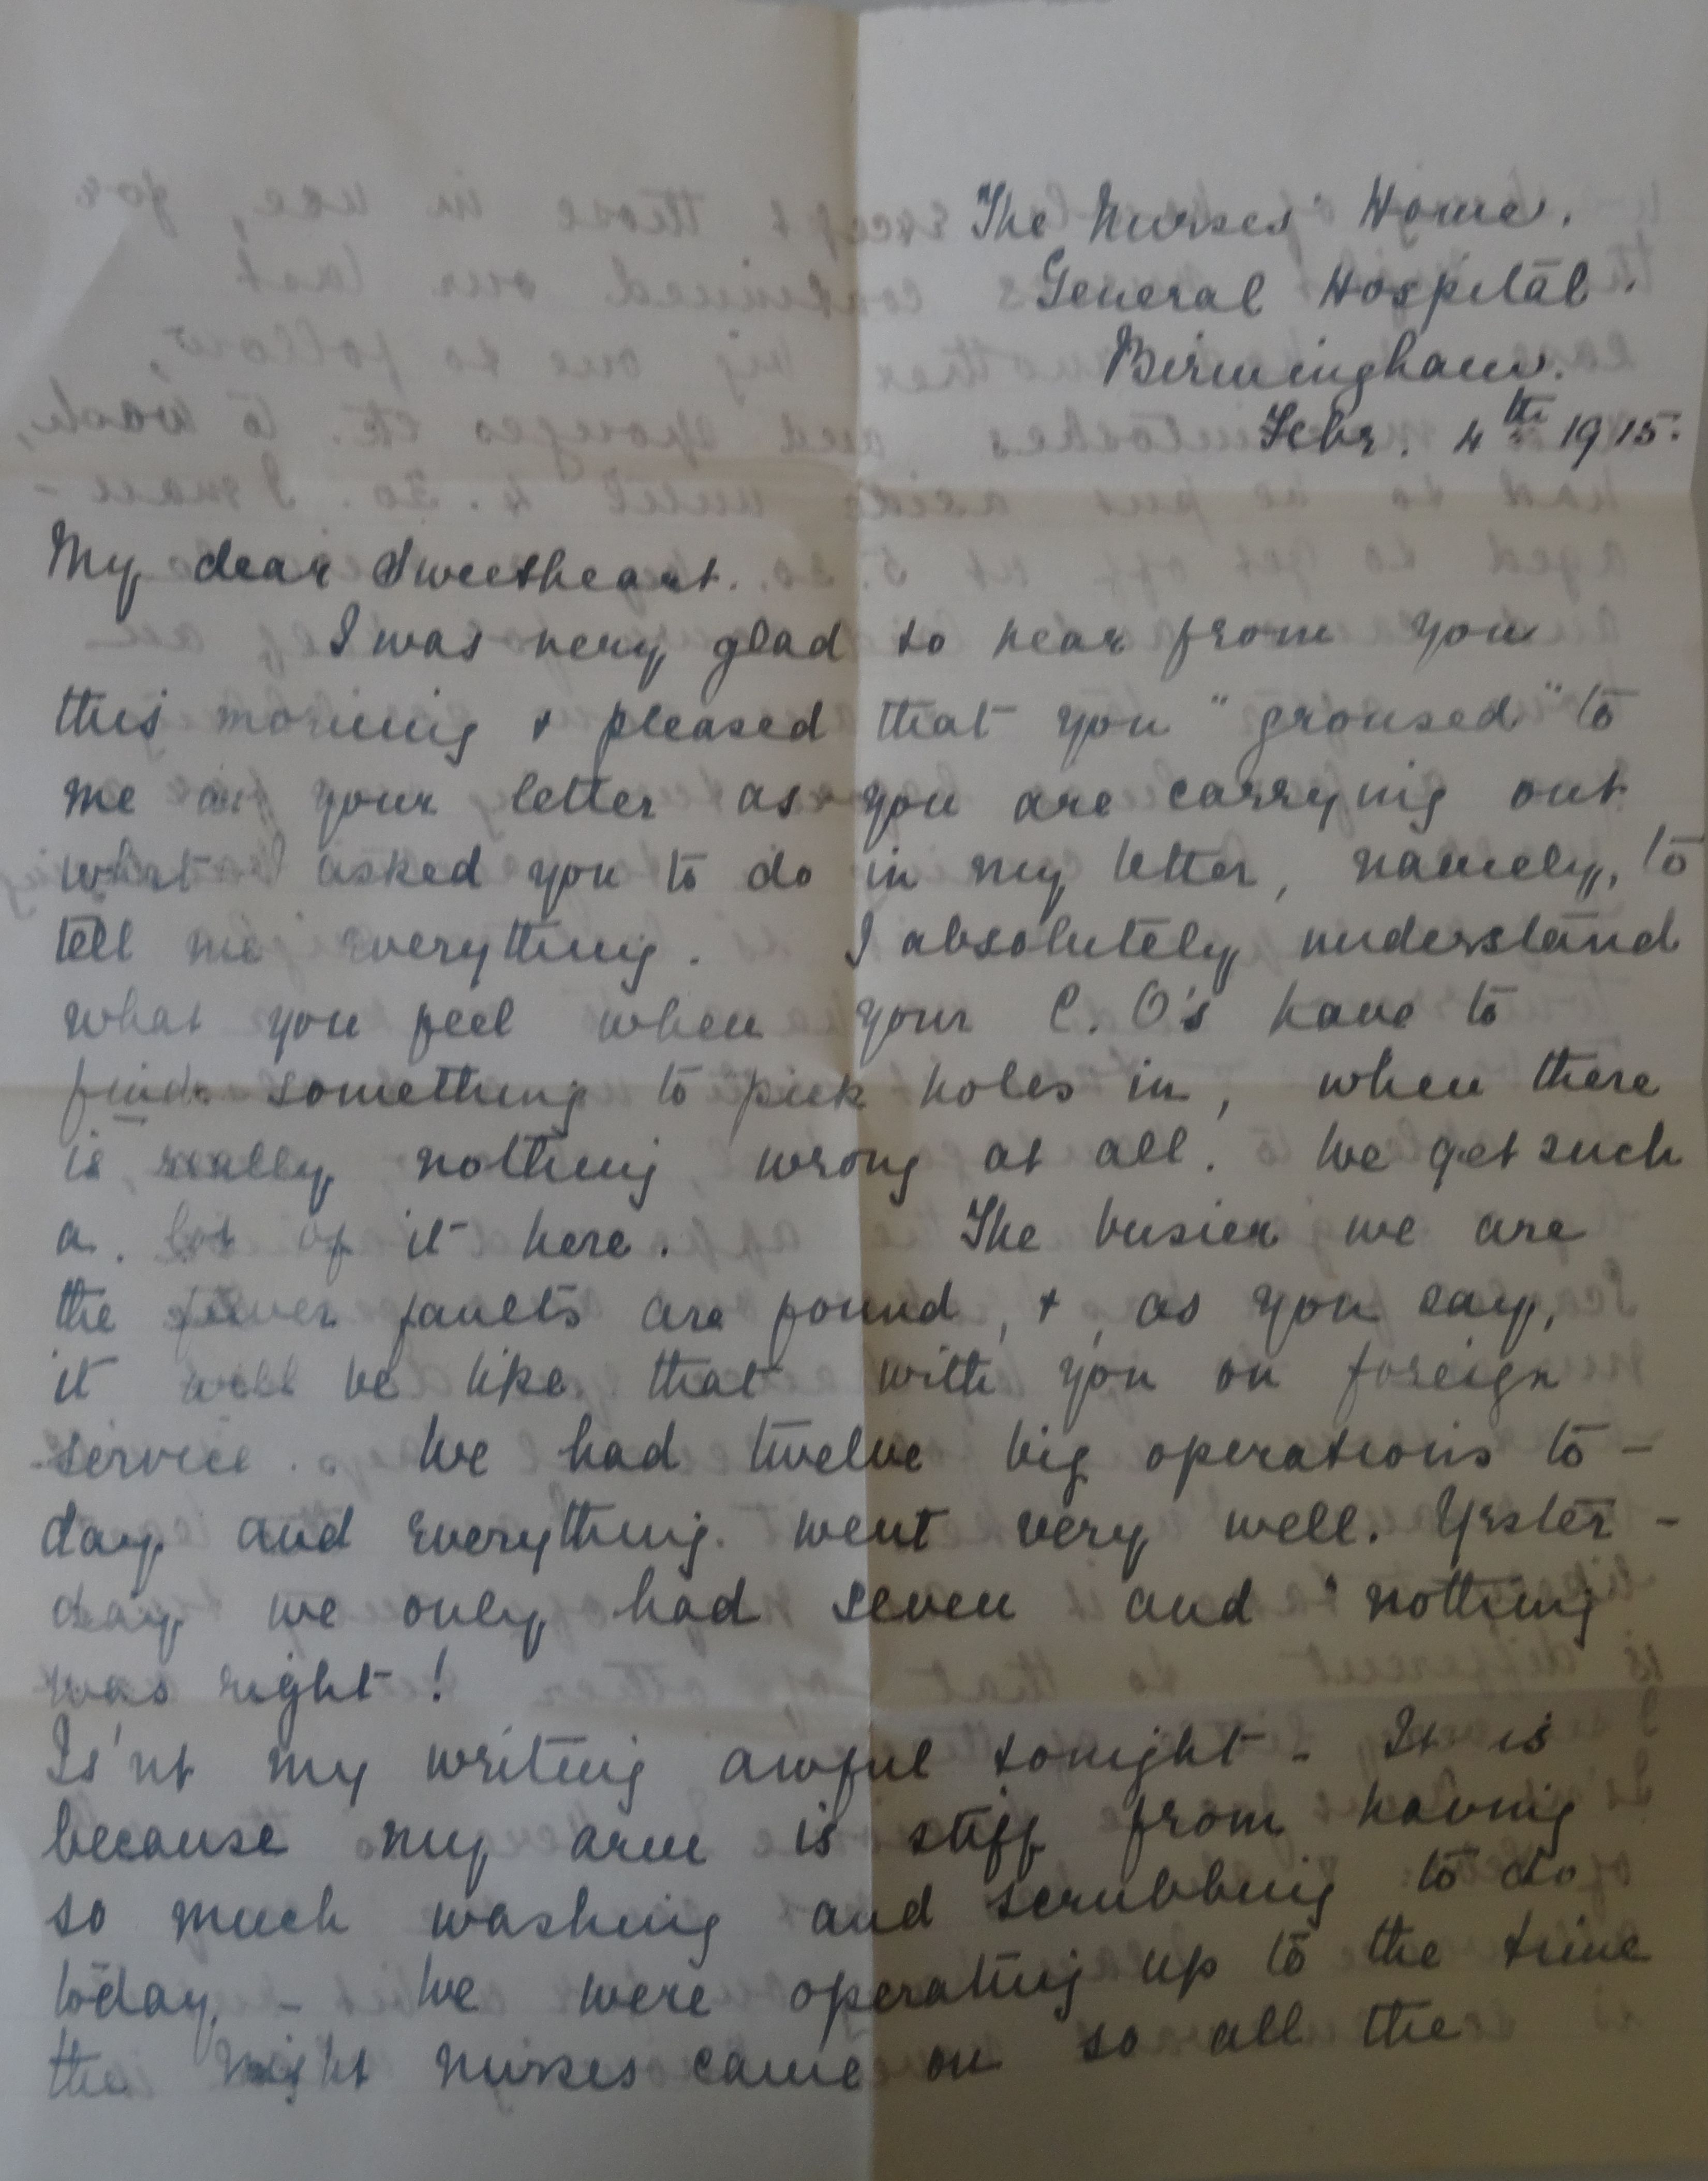 The Nurses' Home.
General Hospital.
Birmingham.
Febr. 4th 1915.
My dear Sweetheart.
I was very glad to hear from you
this morning & pleased that you "groused" to
me in your letter as you are carrying out
what I asked you to do in my letter, namely, to
tell me everything. I absolutely understand
what you feel when your C. O's have to
find something to pick holes in, when there
is really nothing wrong at all. We get such
a lot of it here. The busier we are
the fewer faults are found, &, as you say,
it will be like that with you on foreign
service. We had twelve big operations to-
day and everything went very well. Yester-
day we only had seven and nothing
was right!
Is'nt my writing awful tonight - It is
because my arm is stiff from having
so much washing and scrubbing to do
today, - We were operating up to the time
the night nurses came on so all the